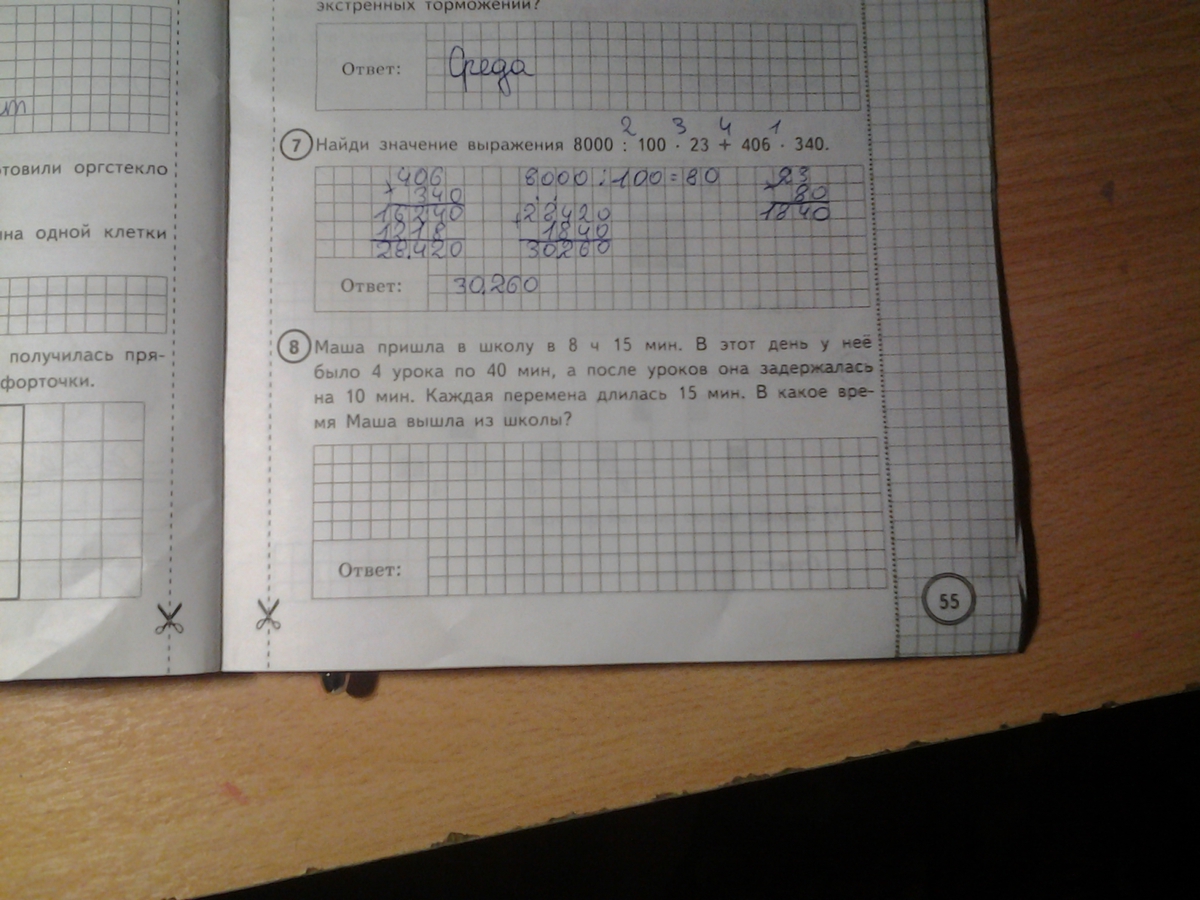 экстренных торможений?
Ответ: Среда
2 3 4 1
7 Найди значение выражения 8000 : 100 · 23 + 406 · 340.
406 8000 : 100 = 80 23
340 80
16240 28420 1840
1218 1840
28.420 30260
Ответ: 30.260
8 Маша пришла в школу в 8 ч 15 мин. В этот день у неё
было 4 урока по 40 мин, а после уроков она задержалась
на 10 мин. Каждая перемена длилась 15 мин. В какое вре-
мя Маша вышла из школы?
Ответ:
55
оргстекло
одной клетки
получилась пря-
форточки.